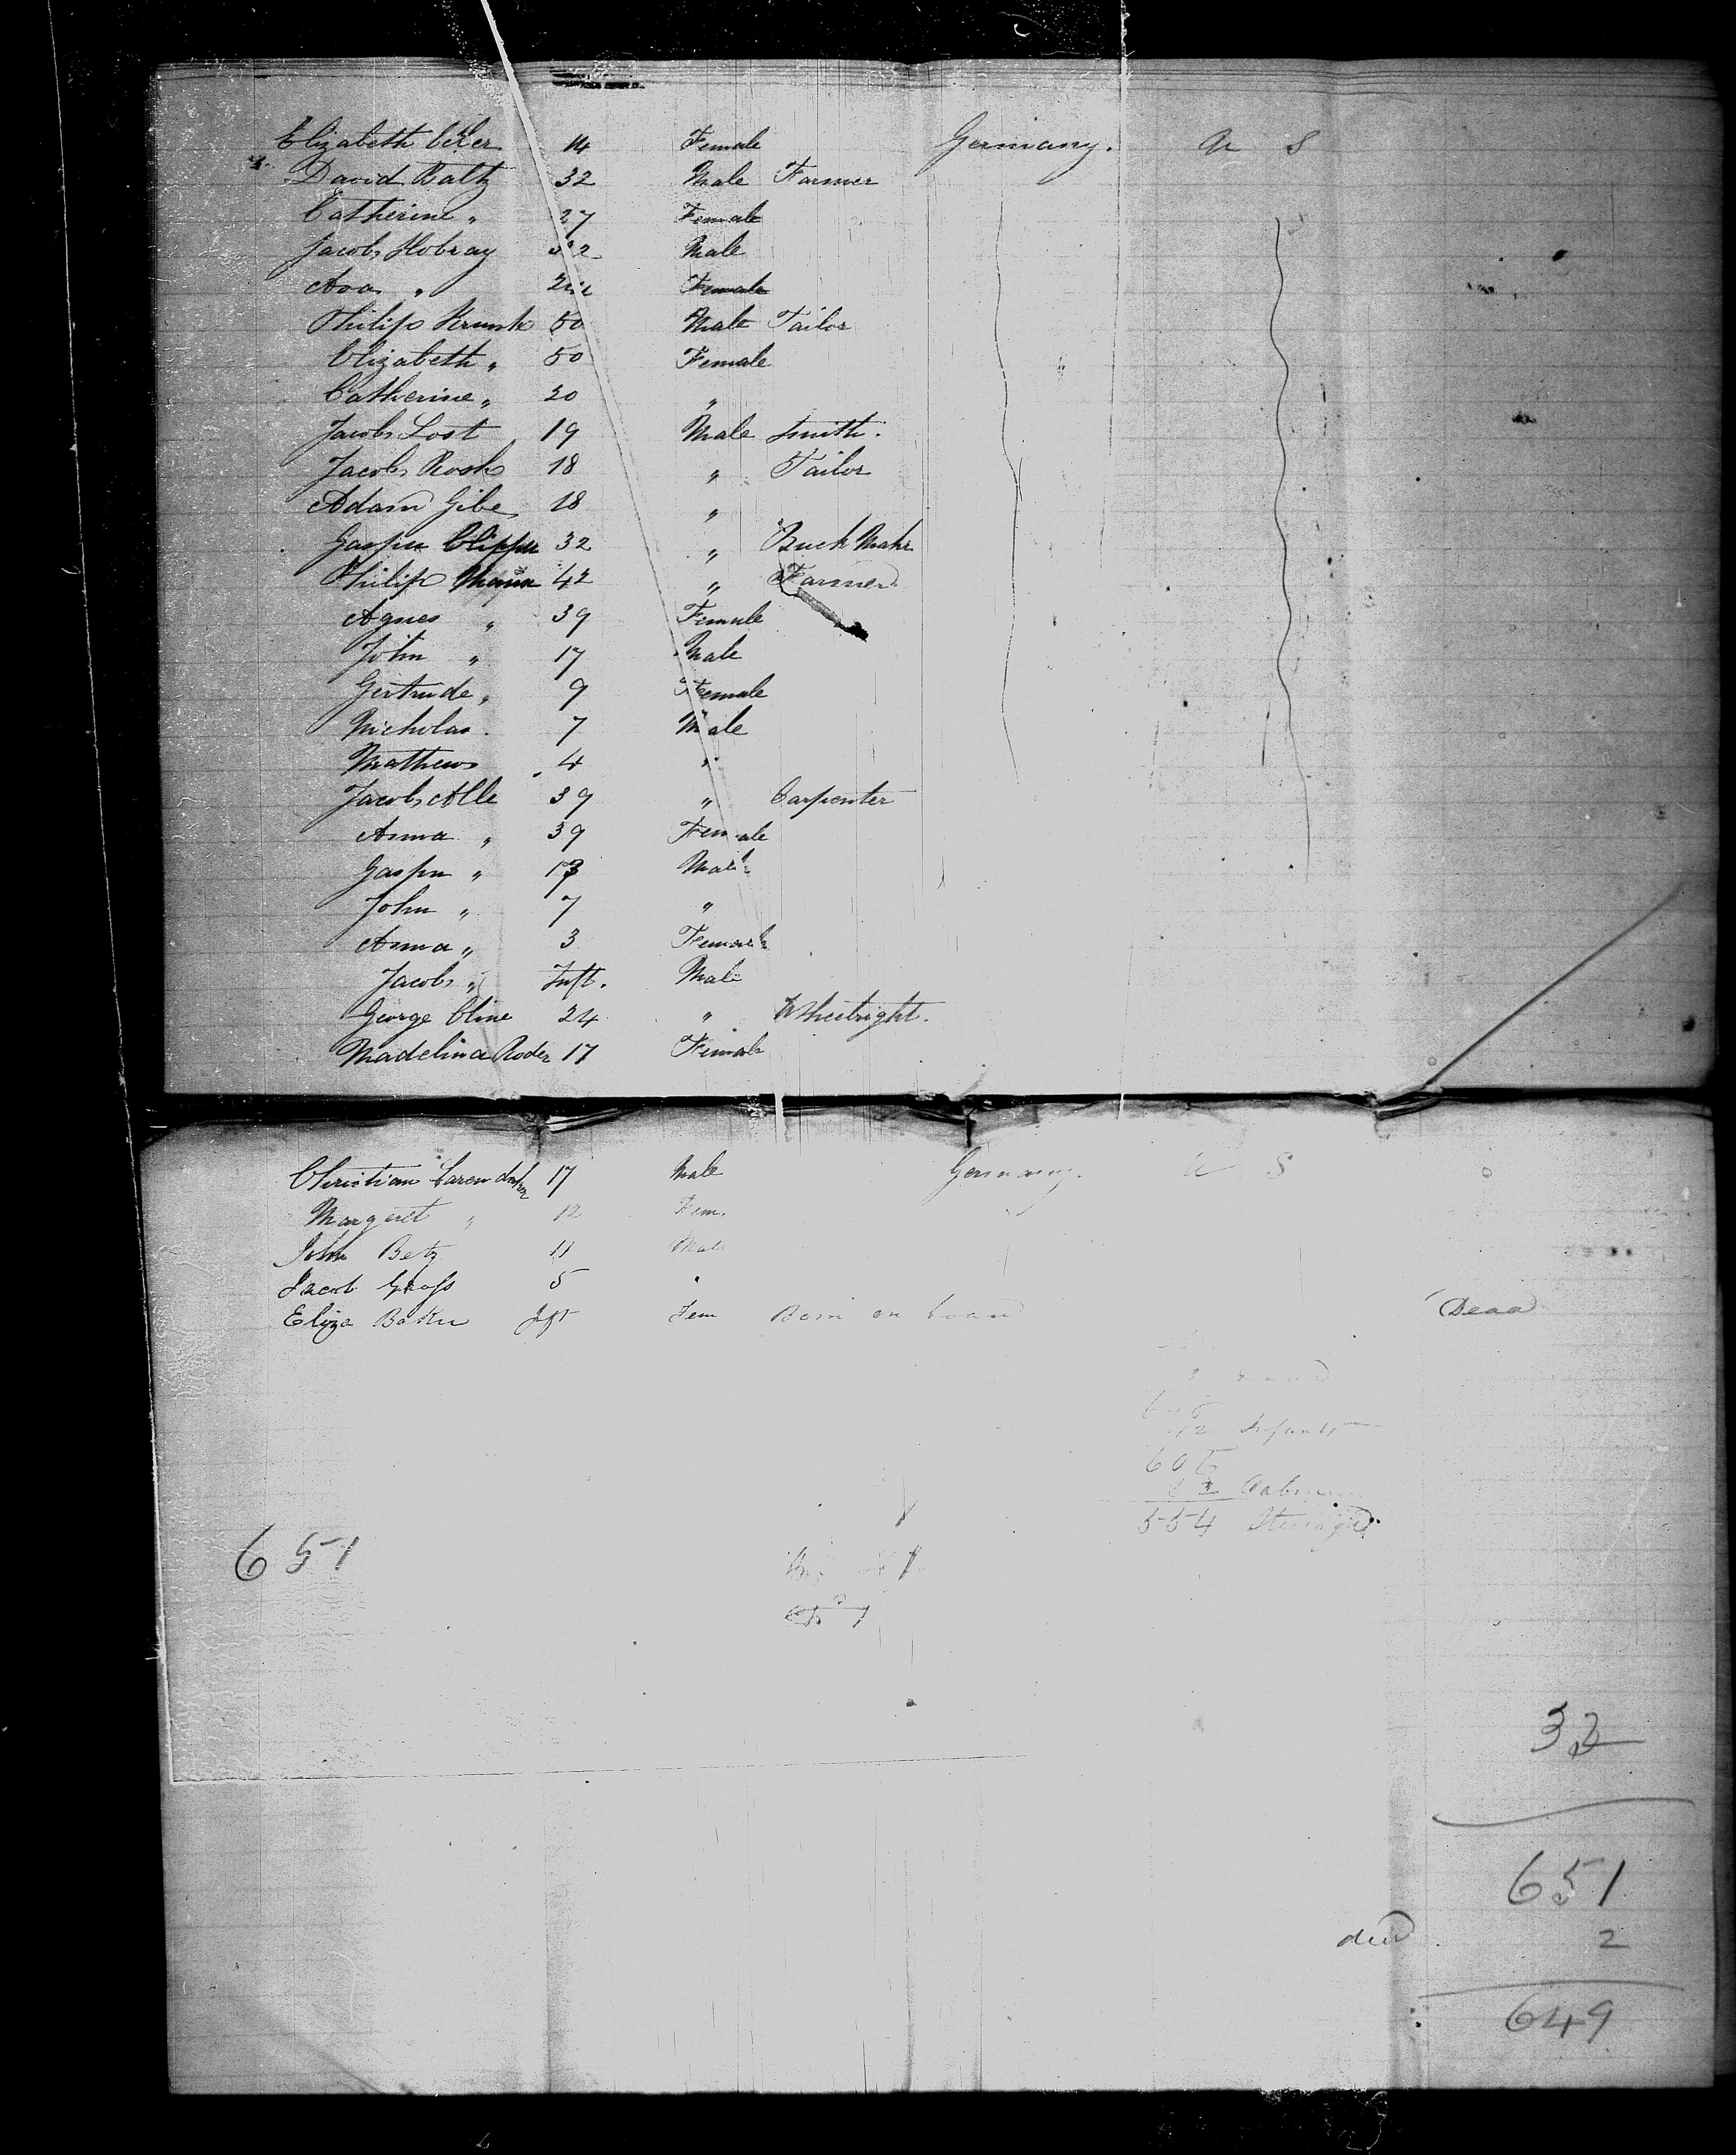 Elizabeth 14 Female Germany. U S
David Baltz 32 Male Farmer
Catherine " 27 Female
Jacob Hobray 32 Male
Female
Philip Krunk 50 Male Tailor
Elizabeth " 50 Female
Catherine " 20 "
Jacob Lost 19 Male Smith.
Jacob Rosh 18 " Tailor
Adam Gibe 18 "
Gasper Clipper 32 "
Philip 42 " Farmer
Agnes " 39 Female
John " 17 Male
Gertrude " 9 Female
Nicholas 7 Male
Mathews 4 "
Jacob Alle 39 " Carpenter
Anna " 39 Female
Gasper " 13 Male
John " 7 "
Anna " 3 Female
Jacob " Inft. Male
George Cline 24 " Wheelright.
Madelina Roder 17 Female
Christian 17 Male Germany. U S
Margaret " 12 Fem.
John Betz 11 Male
Jacob Gross 5 "
Eliza Baker Inft Fem Born on board Dead
Infants
554 Steerage
651
33
651
died 2
649